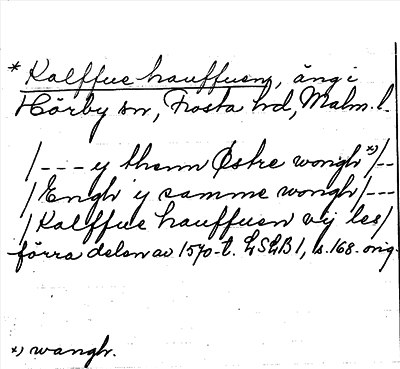 * Kalffue hauffuen, äng i
Hörby sn, Frosta hd, Malm. l.
/--- y thenn Østre wongh *)/--
/Engh y samme wongh/---
/Kalffue hauffuen vij les/
förra delen av 1570-t. LSLB 1, s. 168. orig.
*) wangh.